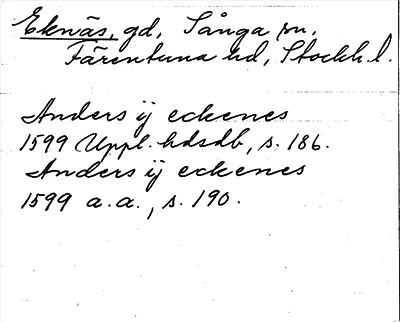 Eknäs, gd, Sånga sn,
Färentuna hd, Stockh. l.
Anders ij eckenes
1599 Uppl. hdsdb, s. 186.
Anders ij eckenes
1599 a. a., s. 190.